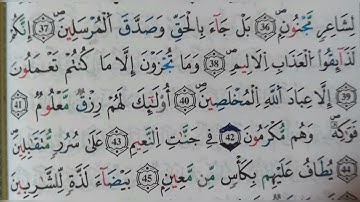 لِشَاعِرٍ مَّجْنُونٍ ۝٣٦ بَلْ جَآءَ بِالْحَقِّ وَصَدَّقَ الْمُرْسَلِينَ ۝٣٧ إِنَّكُمْ
لَذَآئِقُوا۟ الْعَذَابِ الْأَلِيمِ ۝٣٨ وَمَا تُجْزَوْنَ إِلَّا مَا كُنتُمْ تَعْمَلُونَ
۝٣٩ إِلَّا عِبَادَ اللَّهِ الْمُخْلَصِينَ ۝٤٠ أُو۟لَٰٓئِكَ لَهُمْ رِزْقٌ مَّعْلُومٌ ۝٤١
فَوَٰكِهُ وَهُم مُّكْرَمُونَ ۝٤٢ فِي جَنَّٰتِ النَّعِيمِ ۝٤٣ عَلَىٰ سُرُرٍ مُّتَقَٰبِلِينَ
۝٤٤ يُطَافُ عَلَيْهِم بِكَأْسٍ مِّن مَّعِينٍ ۝٤٥ بَيْضَآءَ لَذَّةٍ لِّلشَّٰرِبِينَ